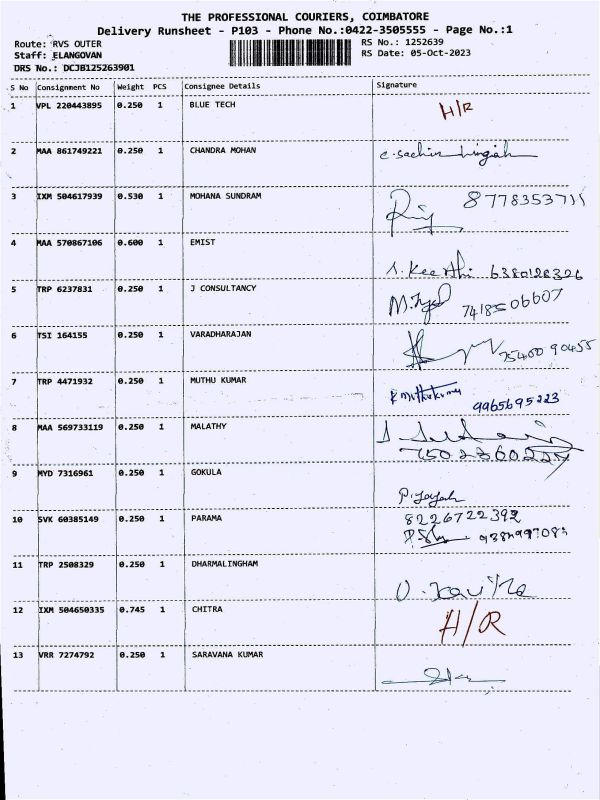 THE PROFESSIONAL COURIERS, COIMBATORE
Delivery Runsheet - P103 - Phone No.:0422-3505555 - Page No.:1
Route: RVS OUTER
RS No.: 1252639
Staff: ELANGOVAN
RS Date: 05-Oct-2023
DRS No.: DCJB125263901
S No Consignment No Weight PCS Consignee Details Signature
1 VPL 220443895 0.250 1 BLUE TECH H/R
2 MAA 861749221 0.250 1 CHANDRA MOHAN
3 IXM 504617939 0.530 1 MOHANA SUNDRAM 8778353711
4 MAA 570867106 0.600 1 EMIST
S. Keerthi 6380128326
5 TRP 6237831 0.250 1 J CONSULTANCY
7418506607
6 TSI 164155 0.250 1 VARADHARAJAN
75400 90455
7 TRP 4471932 0.250 1 MUTHU KUMAR
9965695223
8 MAA 569733119 0.250 1 MALATHY
9 MYD 7316961 0.250 1 GOKULA
10 SVK 60385149 0.250 1 PARAMA 8226722392
11 TRP 2508329 0.250 1 DHARMALINGHAM
12 IXM 504650335 0.745 1 CHITRA H/R
13 VRR 7274792 0.250 1 SARAVANA KUMAR